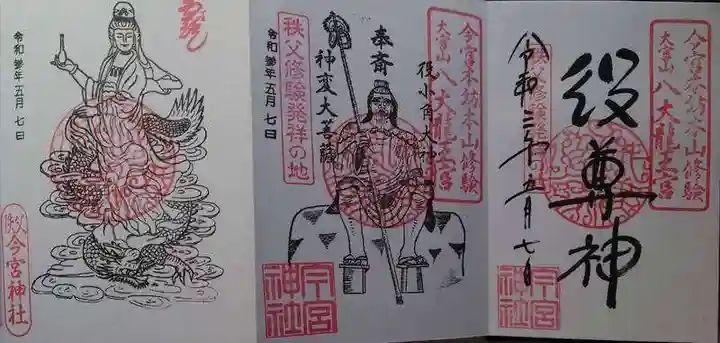 令和参年五月七日
秩父今宮神社
奉斎
役小角大神
神変大菩薩
秩父修験発祥の地
令和参年五月七日
今宮坊本山修験
大宮山
八大龍王宮
今宮神社
今宮坊本山修験
大宮山
八大龍王宮
役尊神
令和三年五月七日
今宮神社